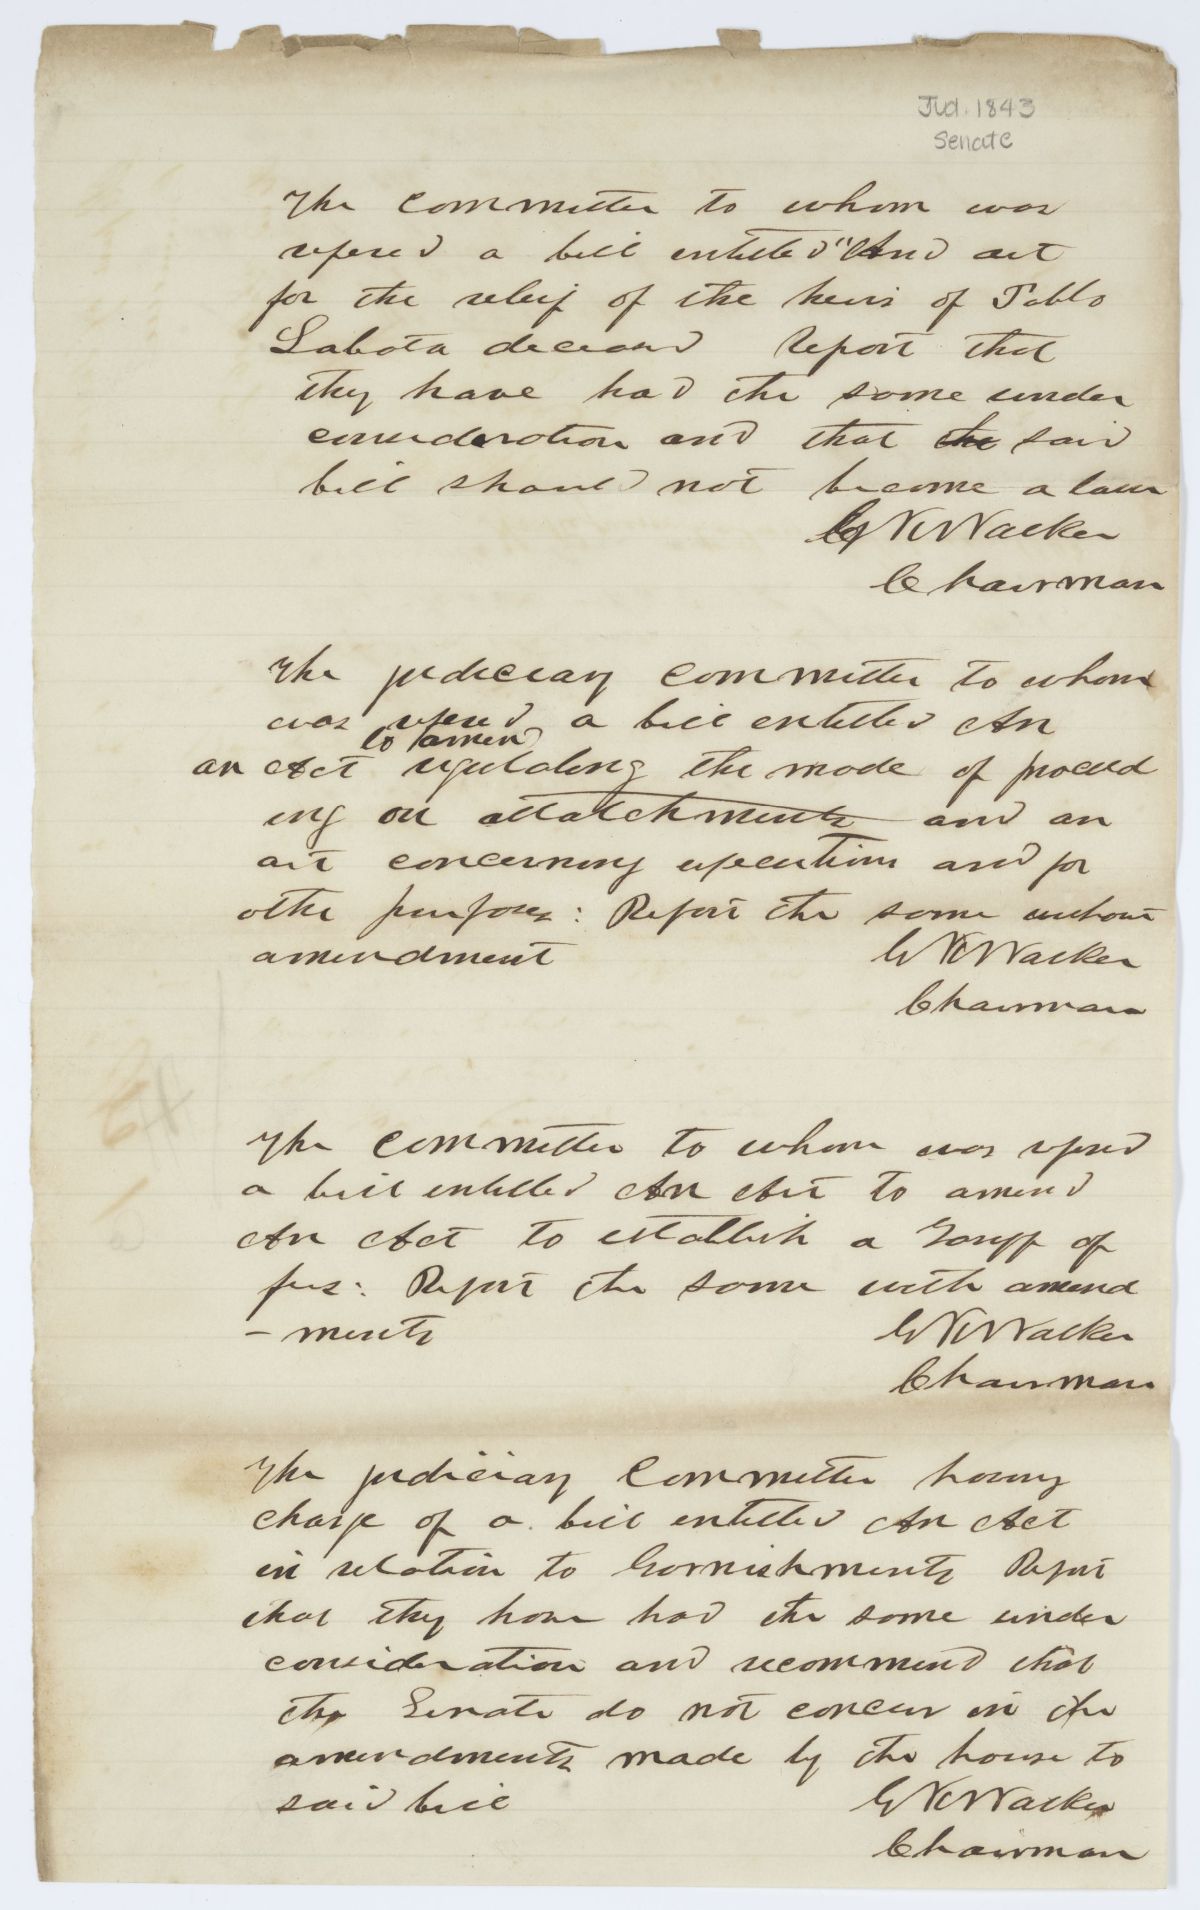 Jud. 1843
Senate
The committee to whom was
refered a bill entitled "And act
for the relief of the heirs of Pablo
Sabota deceased Report that
they have had the same under
consideration and that the said
bill should not become a law
G K Walker
Chairman
The judiciary committee to whom
was refered a bill entitled An
to amend
an Act regulating the mode of proceed
ing on attatchments and an
act concerning executions and for
othe purposes: Report the same without
amendment G K Walker
Chairman
The committee to whom was refered
a bill entitled An Act to amend
An Act to establish a Tariff of
fees: Report the same with amend
- ments G K Walker
Chairman
The judiciary Committee having
charge of a bill entitled An Act
in relation to Garnishments Report
that they have had the same under
consideration and recommend that
the Senate do not concur in the
amendments made by the house to
said bill G K Walker
Chairman